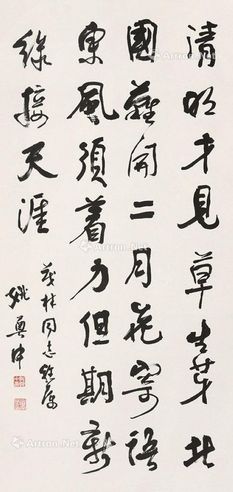 清明才見草生芽北
國難開二月花寄語
東風須着力但期新
綠接天涯
茂林同志雅屬
姚奠中
Artron.Net